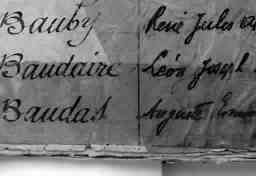 Bauby René Jules
Baudaire Léon Joseph
Baudas Auguste